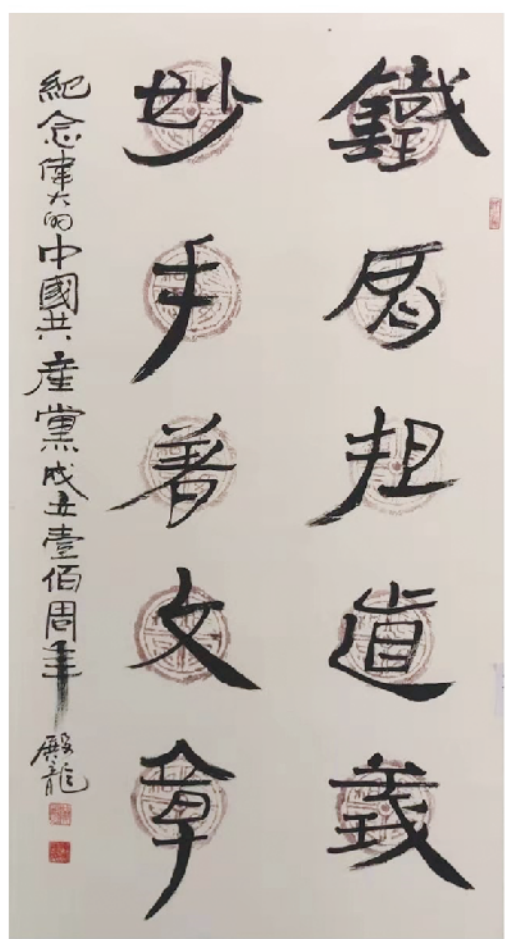 鐵肩担道義
妙手着文章
紀念偉大的中國共產黨成立壹佰周年
殿龍